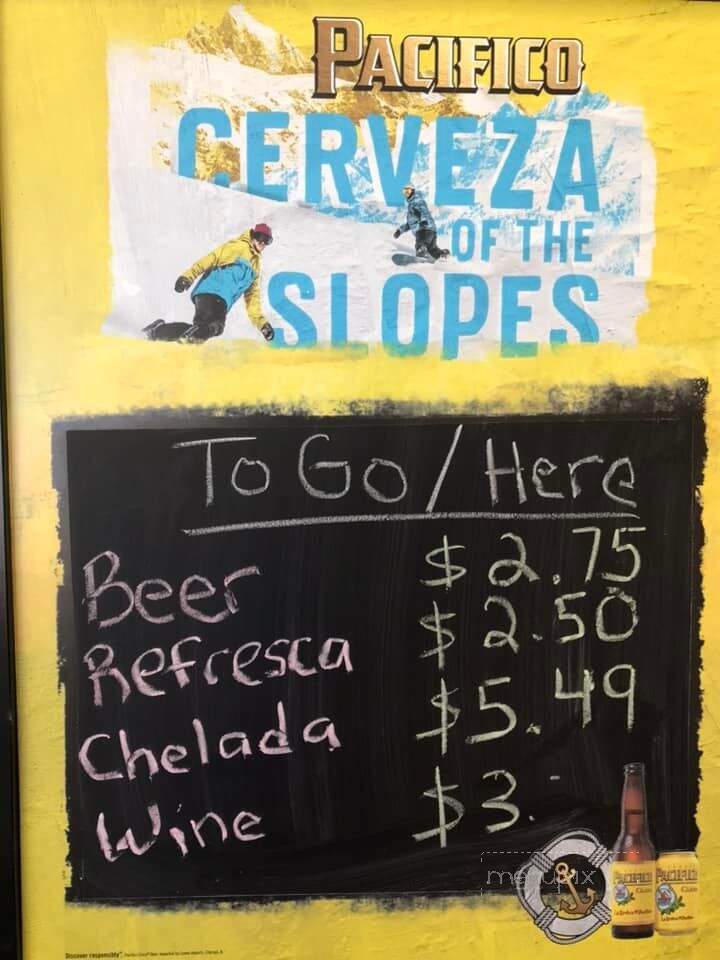 PACIFICO
CERVEZA
OF THE
SLOPES
To Go / Here
Beer $2.75
Refresca $2.50
Chelada $5.49
Wine $3.-
menupix
PACIFICO PACIFICO
Clara Clara
Discover responsibly.